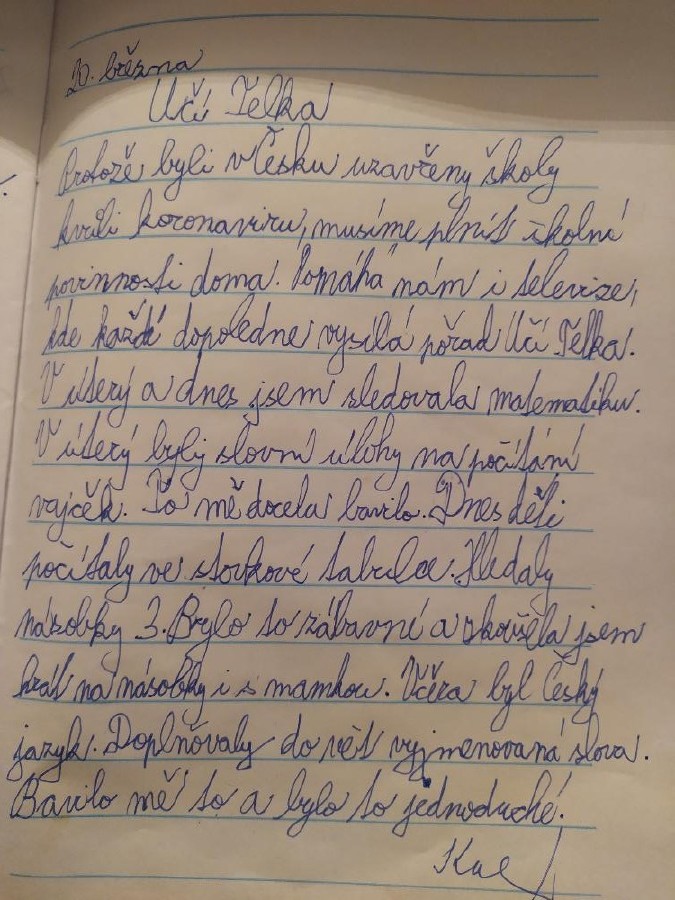 20. března
Učí Telka
Protože byli v Česku uzavřeny školy
kvůli koronaviru, musíme plnit školní
povinnosti doma. Pomáhá nám i televize,
kde každé dopoledne vysílá pořad Učí Telka.
V úterý a dnes jsem sledovala matematiku.
V úterý byly slovní úlohy na počítání
vajíček. To mě docela bavilo. Dnes děti
počítaly ve stovkové tabulce. Hledaly
násobky 3. Bylo to zábavné a zkoušela jsem
hrát na násobky i s mamkou. Včera byl Český
jazyk. Doplňovaly do vět vyjmenovaná slova.
Bavilo mě to a bylo to jednoduché.